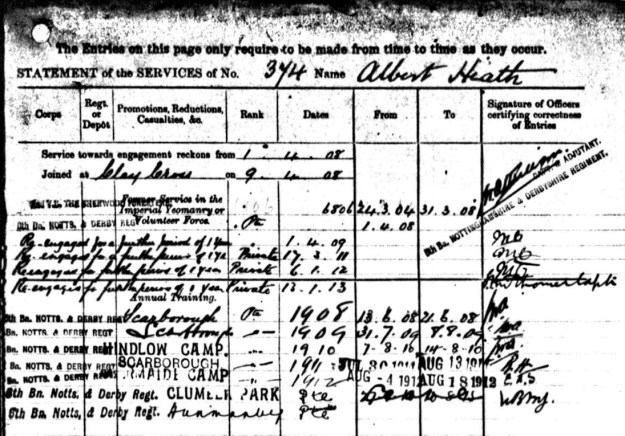 The Entries on this page only require to be made from time to time as they occur.
STATEMENT of the SERVICES of No. 374 Name Albert Heath
Corps Regt. or Depôt Promotions, Reductions, Casualties, &c. Rank Dates From To Signature of Officers certifying correctness of Entries
Service towards engagement reckons from 1 . 4 . 08
Joined at Clay Cross on 9 . 4 . 08
Former Service in the Imperial Yeomanry or Volunteer Force. 6806 24.3.04 31.3.08
8th Bn. NOTTS. & DERBY REGT Pte 1.4.08
ADJUTANT.
8th Bn. NOTTINGHAMSHIRE & DERBYSHIRE REGIMENT.
Re-engaged for a further period of 1 year 1.4.09
Re-engaged for a further period of 1 yr Private 17.3.11
Re-engaged for further period of 1 year Private 6.1.12
Re-engaged for further period of 1 year Private 1.13
Annual Training.
8th Bn. NOTTS. & DERBY REGT Scarborough Pte 1908 13.6.08 21.6.08
Bn. NOTTS. & DERBY REGT Scarborough " 1909 31.7.09 8.8.09
Bn. NOTTS. & DERBY REGT HINDLOW CAMP. " 1910 7-8-10 14-8-10
Bn. NOTTS. & DERBY REGT SCARBOROUGH " 1911 JUL 30 1911 AUG 13 1911
Bn. NOTTS. & DERBY REGT CAMP " 1912 AUG - 4 1912 AUG 18 1912
8th Bn. Notts, & Derby Regt. CLUMBER PARK Pte
8th Bn. Notts, & Derby Regt. Hunmanby Pte